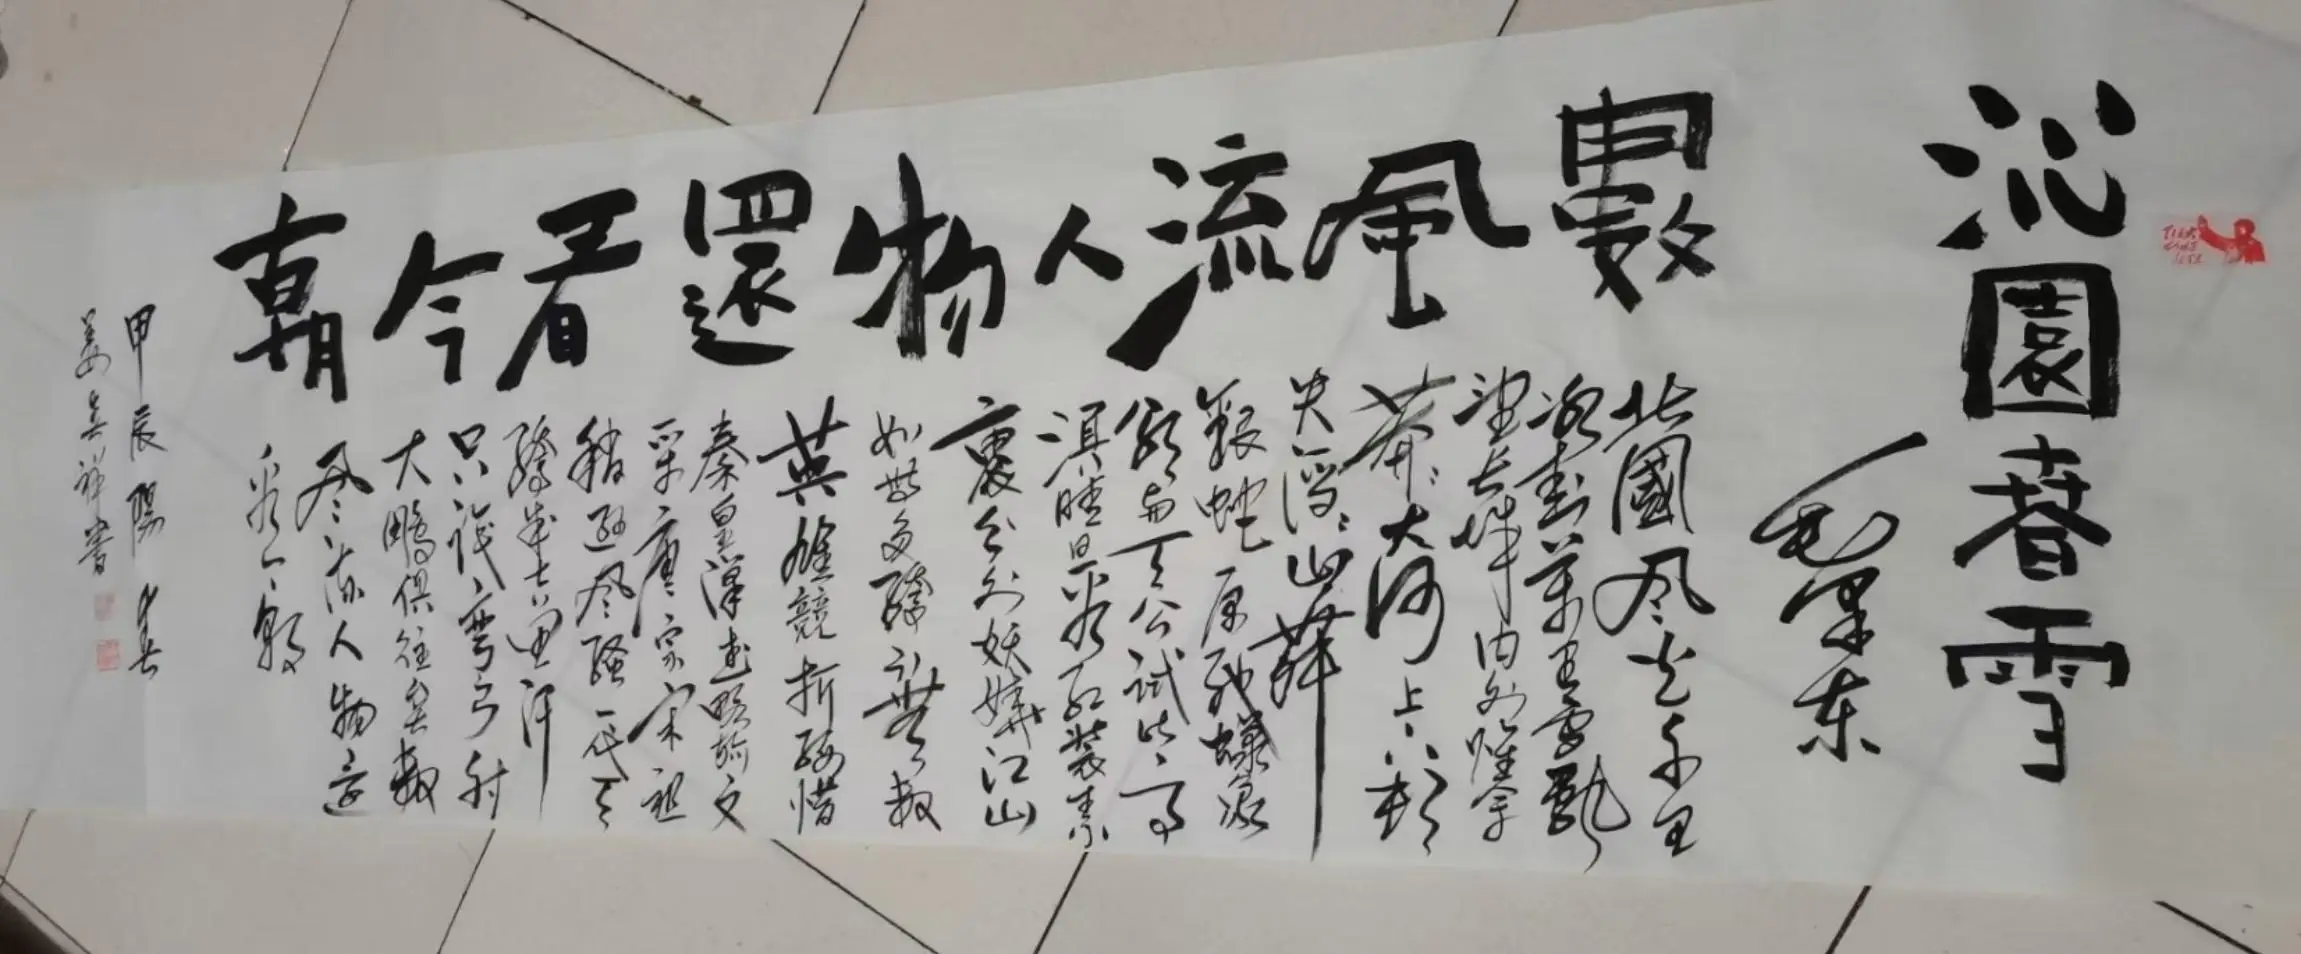 沁園春雪
毛泽东
數風流人物還看今朝
北國风光千里
冰封万里雪飘
望长城内外惟余
莽〻大河上下顿
失滔〻山舞
银蛇原驰蜡象
欲与天公试比高
须晴日看红装素
裹分外妖娆江山
如此多娇引無数
英雄競折腰惜
秦皇漢武略输文
采唐宗宋祖
稍逊风骚一代天
骄成吉思汗
只识弯弓射
大鵰俱往矣数
风流人物还
看今朝
甲辰陽春
祥書